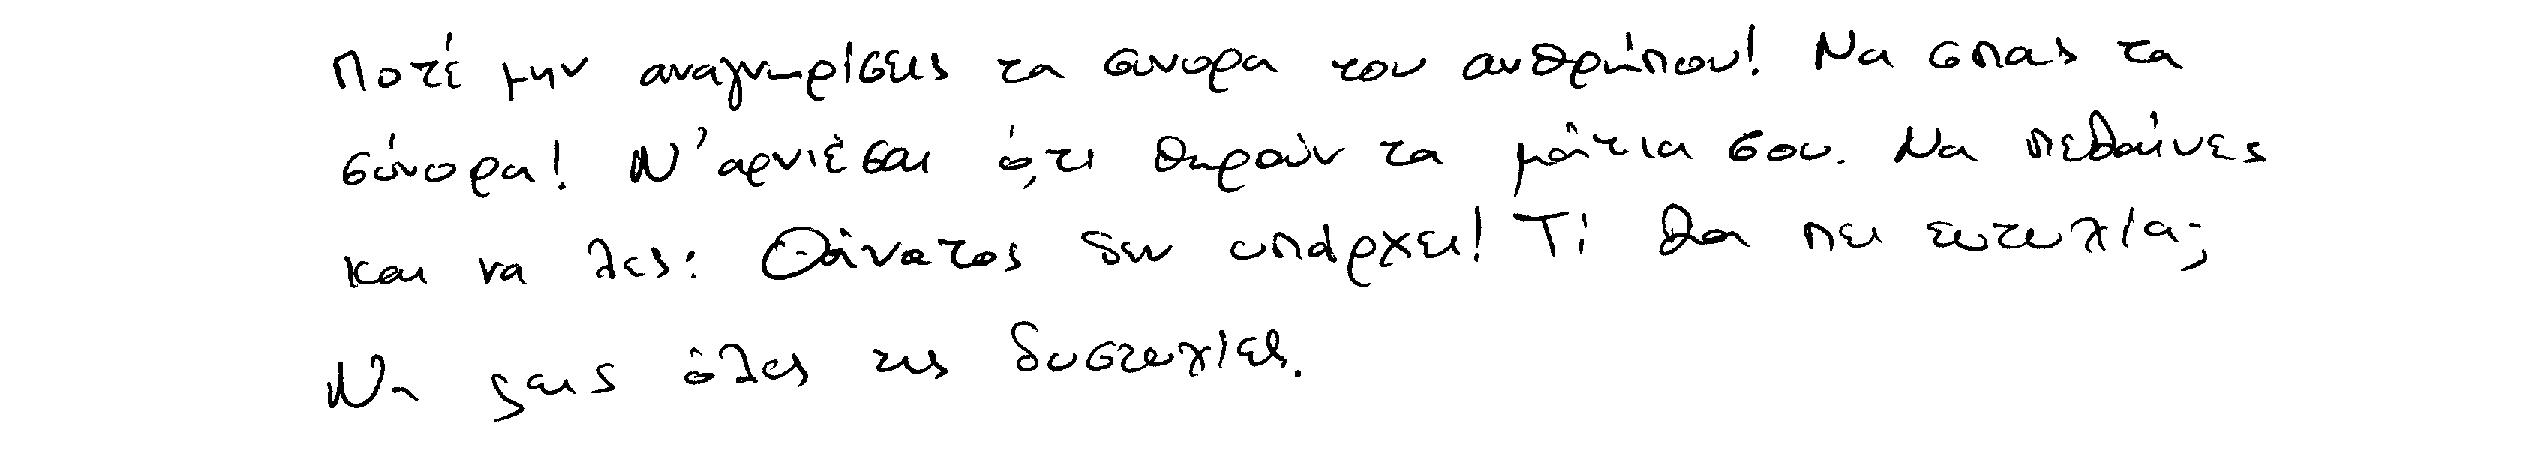 Ποτέ μην αναγνωρίσεις τα συνορα του ανθρώπου! Να σπας τα
σύνορα! Ν'αρνιέσαι ό,τι θωρούν τα μάτια σου. Να πεθαίνεις
και να λες: Θάνατος δεν υπάρχει! Τί θα πει ευτυχία;
Να ζεις όλες τις δυστυχίες.